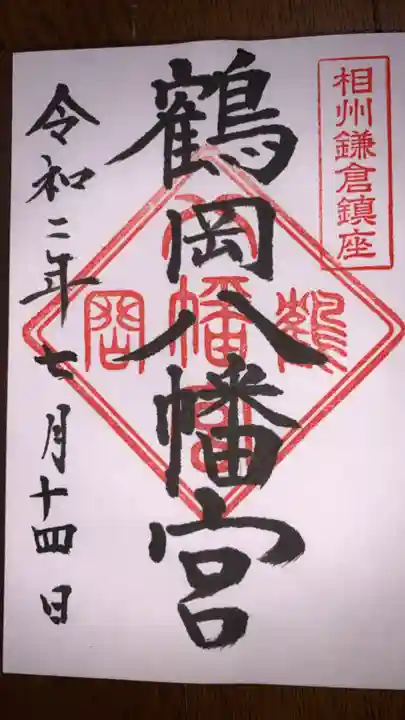 相州鎌倉鎮座
鶴岡八幡宮
鶴岡
八幡宮
令和二年七月十四日